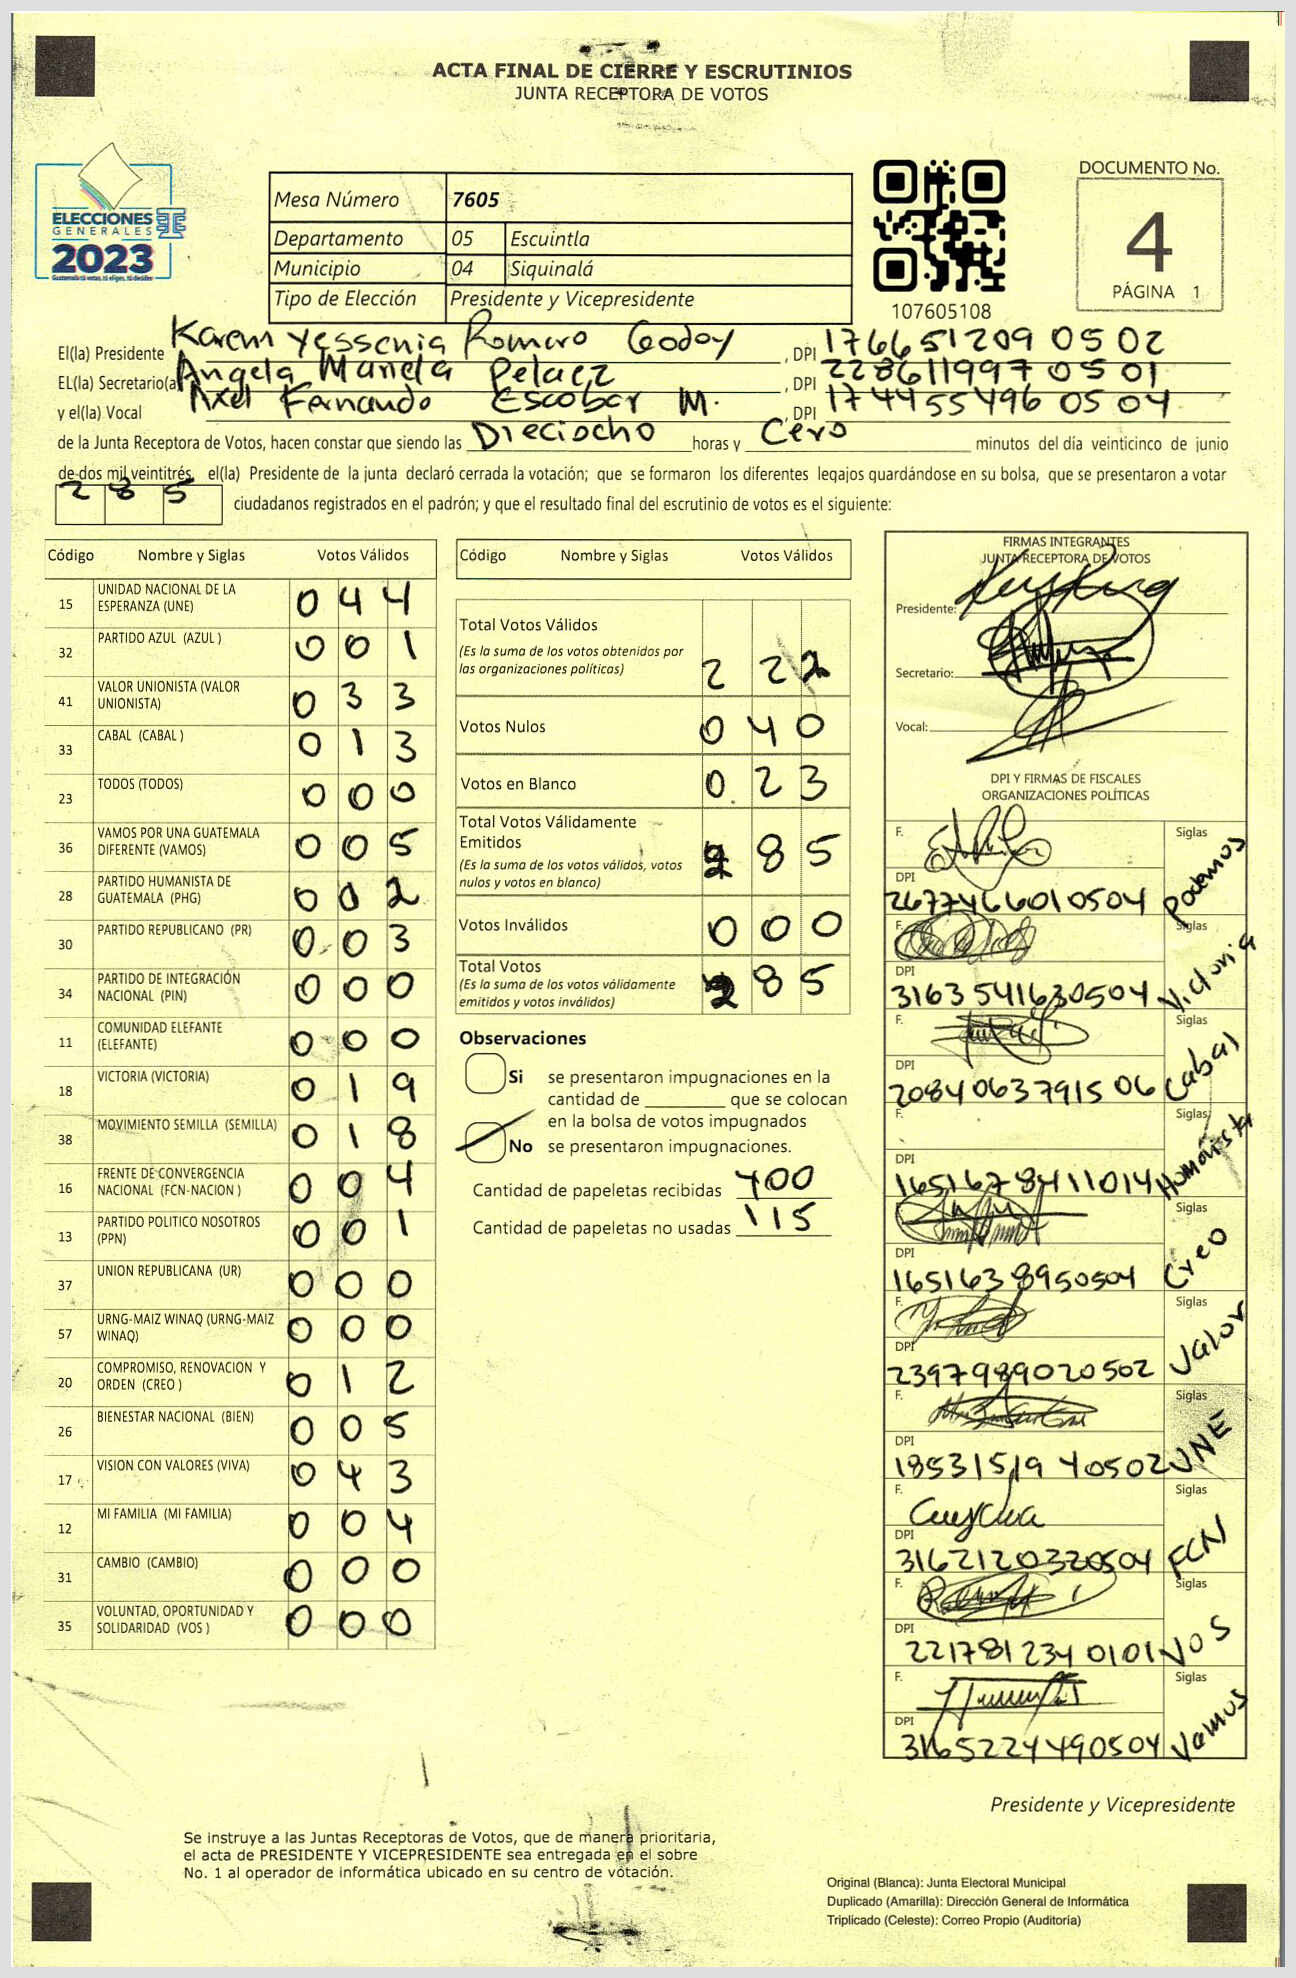 ACTA FINAL DE CIERRE Y ESCRUTINIOS
JUNTA RECEPTORA DE VOTOS
ELECCIONES
GENERALES
2023
Mesa Número 7605
Departamento 05 Escuintla
Municipio 04 Siquinalá
Tipo de Elección Presidente y Vicepresidente
107605108
DOCUMENTO No.
4
PÁGINA 1
El(la) Presidente Karem Yessenia Romero Godoy , DPI 176651209 05 02
EL(la) Secretario(a) Angela Mariela Pelaez , DPI 228611997 0501
y el(la) Vocal Axel Fernando Escobar M. , DPI 174455496 0504
de la Junta Receptora de Votos, hacen constar que siendo las Dieciocho horas y Cero minutos del día veinticinco de junio
de dos mil veintitrés, el(la) Presidente de la junta declaró cerrada la votación; que se formaron los diferentes legajos guardándose en su bolsa, que se presentaron a votar
285 ciudadanos registrados en el padrón; y que el resultado final del escrutinio de votos es el siguiente:
Código Nombre y Siglas Votos Válidos
15 UNIDAD NACIONAL DE LA ESPERANZA (UNE) 044
32 PARTIDO AZUL (AZUL ) 001
41 VALOR UNIONISTA (VALOR UNIONISTA) 033
33 CABAL (CABAL ) 013
23 TODOS (TODOS) 000
36 VAMOS POR UNA GUATEMALA DIFERENTE (VAMOS) 005
28 PARTIDO HUMANISTA DE GUATEMALA (PHG) 002
30 PARTIDO REPUBLICANO (PR) 003
34 PARTIDO DE INTEGRACIÓN NACIONAL (PIN) 000
11 COMUNIDAD ELEFANTE (ELEFANTE) 000
18 VICTORIA (VICTORIA) 019
38 MOVIMIENTO SEMILLA (SEMILLA) 018
16 FRENTE DE CONVERGENCIA NACIONAL (FCN-NACION ) 004
13 PARTIDO POLITICO NOSOTROS (PPN) 001
37 UNION REPUBLICANA (UR) 000
57 URNG-MAIZ WINAQ (URNG-MAIZ WINAQ) 000
20 COMPROMISO, RENOVACION Y ORDEN (CREO ) 012
26 BIENESTAR NACIONAL (BIEN) 005
17 VISION CON VALORES (VIVA) 043
12 MI FAMILIA (MI FAMILIA) 004
31 CAMBIO (CAMBIO) 000
35 VOLUNTAD, OPORTUNIDAD Y SOLIDARIDAD (VOS ) 000
Código Nombre y Siglas Votos Válidos
Total Votos Válidos 222
(Es la suma de los votos obtenidos por
las organizaciones políticas)
Votos Nulos 040
Votos en Blanco 023
Total Votos Válidamente
Emitidos 285
(Es la suma de los votos válidos, votos
nulos y votos en blanco)
Votos Inválidos 000
Total Votos 285
(Es la suma de los votos válidamente
emitidos y votos inválidos)
Observaciones
Si se presentaron impugnaciones en la
cantidad de ________ que se colocan
en la bolsa de votos impugnados
No se presentaron impugnaciones.
Cantidad de papeletas recibidas 400
Cantidad de papeletas no usadas 115
FIRMAS INTEGRANTES
JUNTA RECEPTORA DE VOTOS
Presidente:
Secretario:
Vocal:
DPI Y FIRMAS DE FISCALES
ORGANIZACIONES POLÍTICAS
F. Siglas Podemos
DPI 2677466010504
F. Siglas Victoria
DPI 3163541630504
F. Siglas Cabal
DPI 2084063791506
F. Siglas Humanista
DPI 1651678411014
F. Siglas Creo
DPI 1651638950504
F. Siglas Valor
DPI 2397989020502
F. Siglas UNE
DPI 1853151940502
F. Siglas FCN
DPI 3162120320504
F. Siglas VOS
DPI 2217812340101
F. Siglas Vamos
DPI 3165224490504
Presidente y Vicepresidente
Se instruye a las Juntas Receptoras de Votos, que de manera prioritaria,
el acta de PRESIDENTE Y VICEPRESIDENTE sea entregada en el sobre
No. 1 al operador de informática ubicado en su centro de votación.
Original (Blanca): Junta Electoral Municipal
Duplicado (Amarilla): Dirección General de Informática
Triplicado (Celeste): Correo Propio (Auditoría)